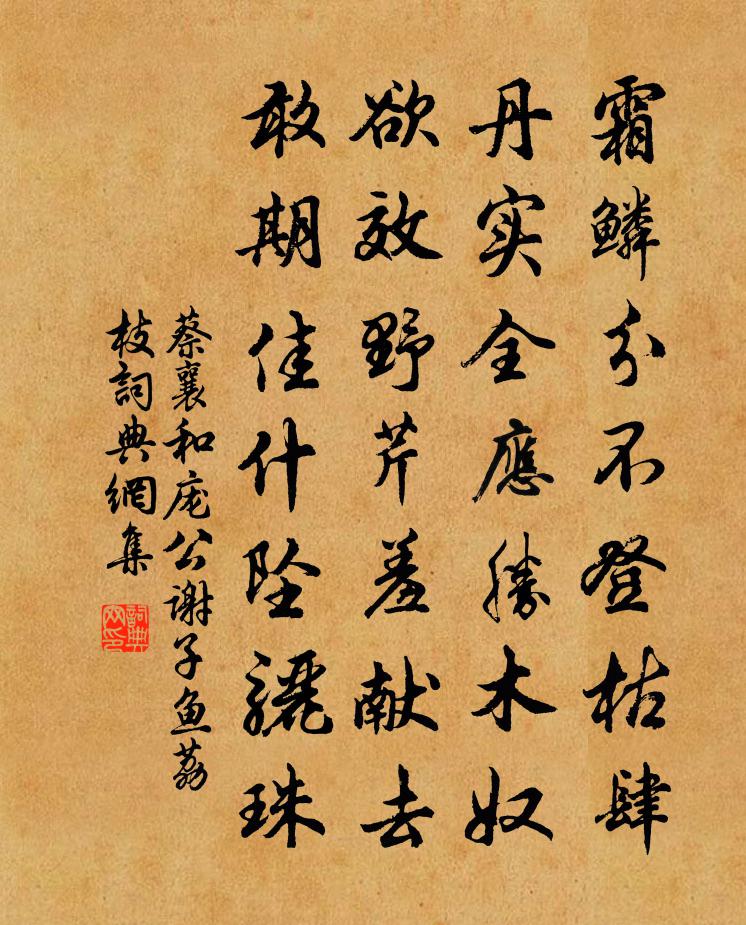 霜鳞分不登枯肆
丹实全應勝木奴
欲效野芹羞献去
敢期佳什坠骊珠
蔡襄和庞公谢子鱼荔
枝詞典網集
詞典
网印